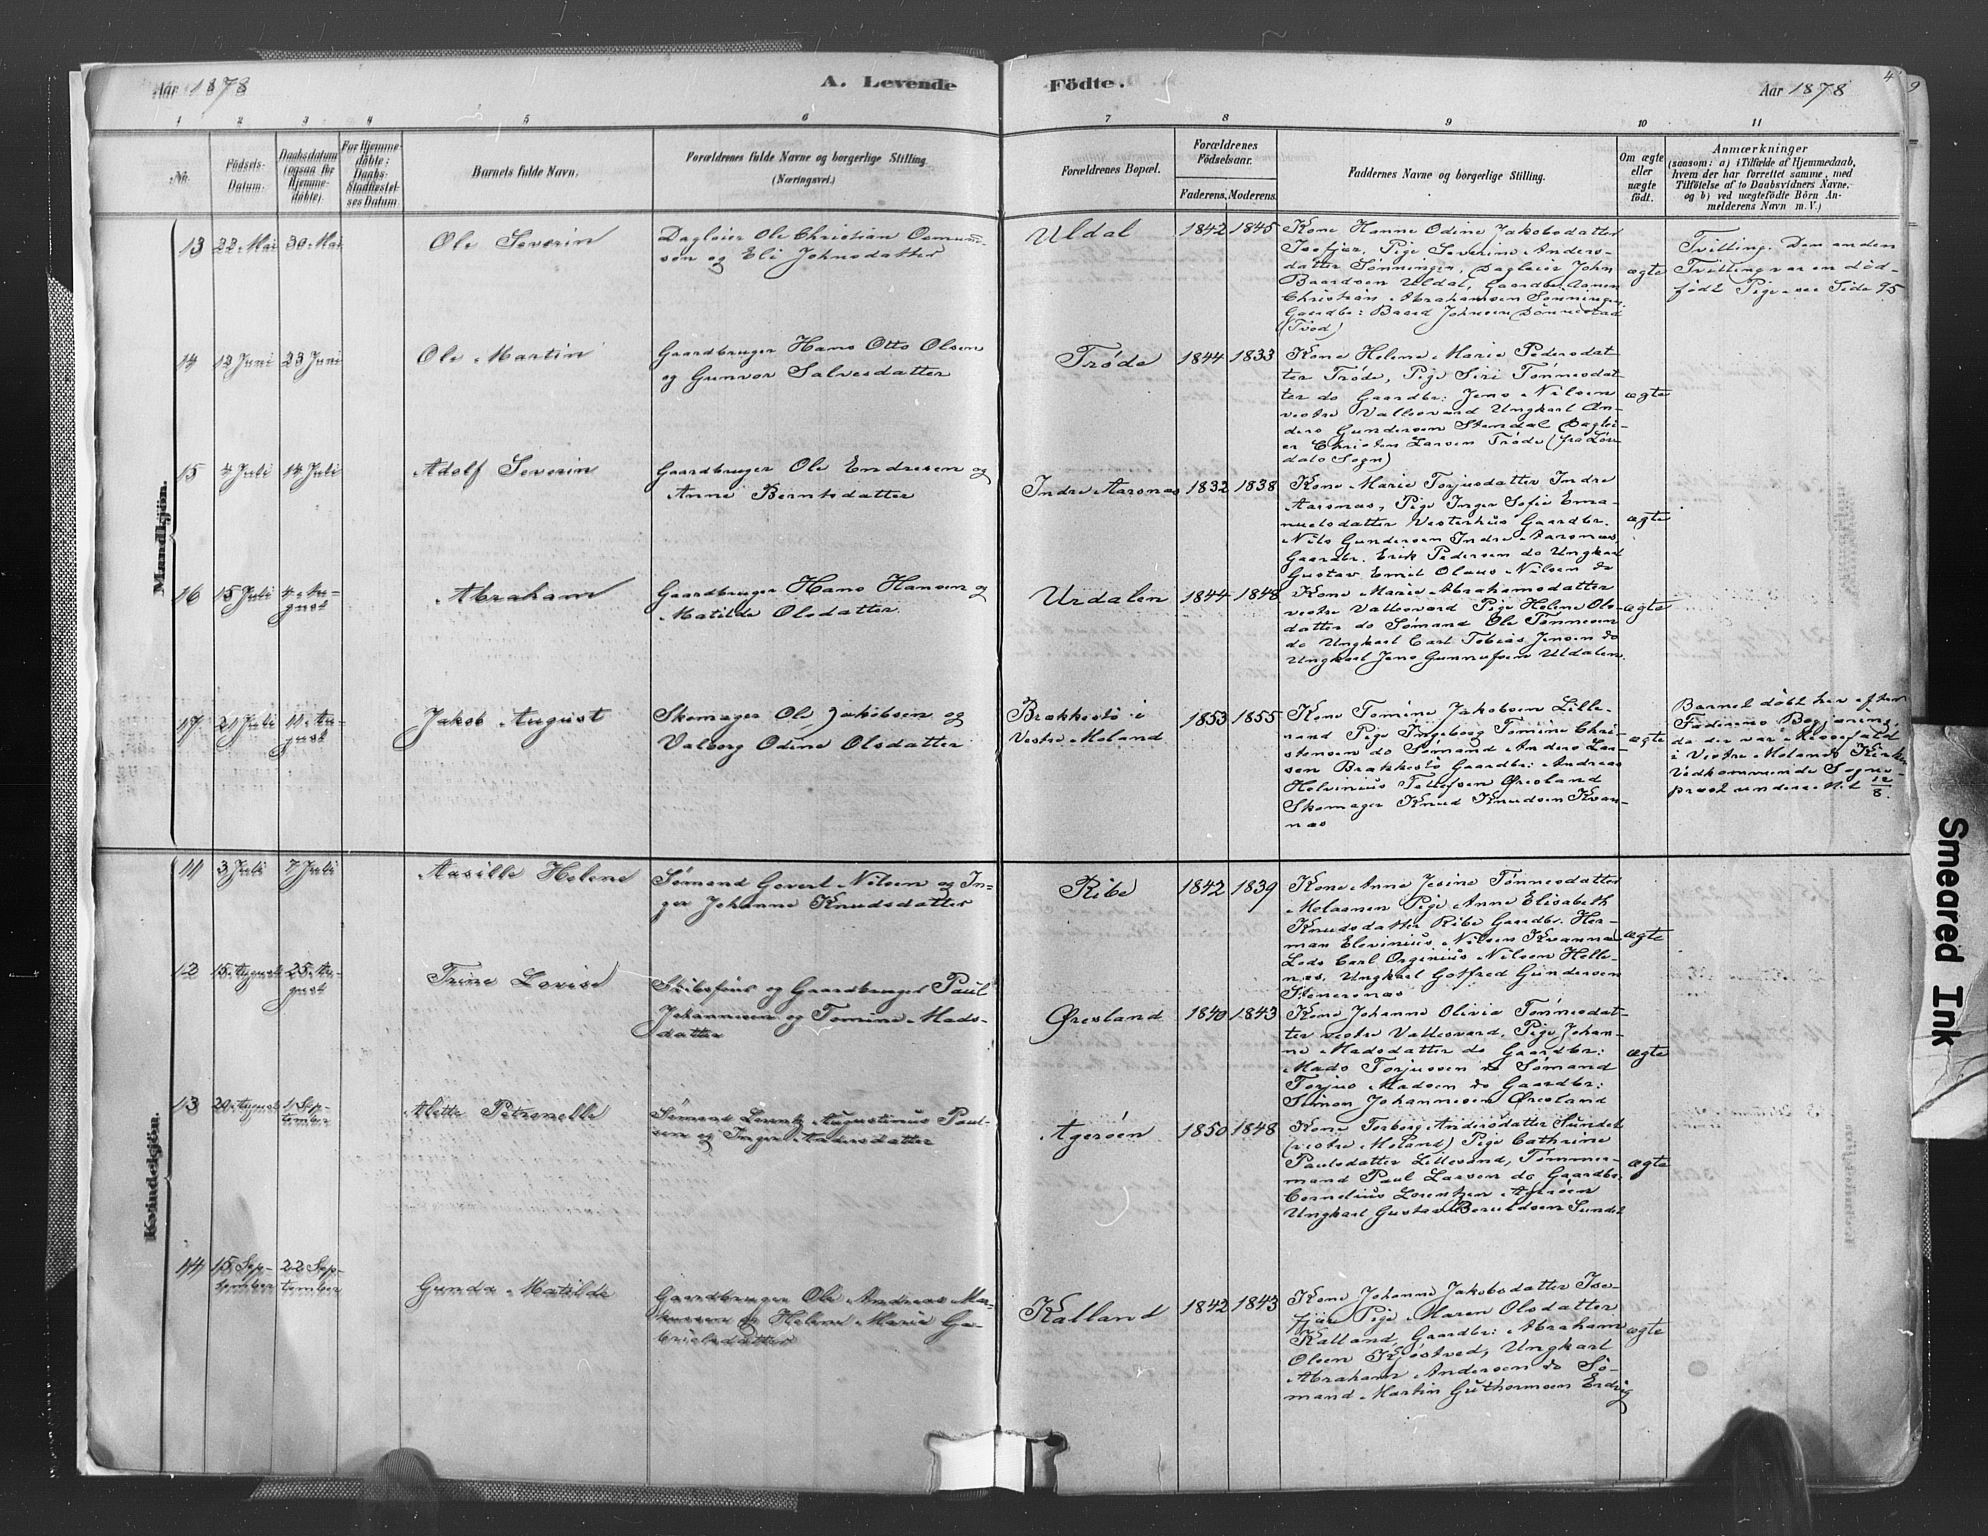 Aar 1878
A. Levende
Födte.
Aar 1878
4
9
1
2
3
4
5
6
7
8
9
10
11
No.
Födsels-
Datum.
Daabsdatum
(ogsaa for
Hjemme-
döbte).
For Hjemme-
döbte:
Daabs-
Stadfæstel-
ses Datum
Barnets fulde Navn.
Forældrenes fulde Navne og borgerlige Stilling.
(Næringsvei.)
Forældrenes Bopæl.
Forældrenes
Födselsaar.
Faderens. Moderens.
Faddernes Navne og borgerlige Stilling.
Om ægte
eller
uægte
födt.
Anmærkninger
(saasom: a) i Tilfælde af Hjemmedaab,
hvem der har forrettet samme, med
Tilföielse af to Daabsvidners Navne.
og b) ved uægtefödte Börn An-
melderens Navn m. V.)
Mandkjön.
13
22 Mai
30 Mai
Ole Severin
Dagleier Ole Christian Osmund-
sen og Eli Johnsdatter
Uldal
1842
1845
Kone Hanne Odine Jakobsdatter
Isefjær, Pige Severine Anders-
datter Sønningen, Dagleier John
Baardsen Uldal, Gaardbr. Aanen
Christian Abrahamsen Sønningen
Gaardbr: Baard Johnsen Dønnestad
(Tvod)
ægte
Tvilling. Den anden
Tvilling var en død-
født Pige see Side 95
14
12 Juni
23 Juni
Ole Martin
Gaardbruger Hans Otto Olsen
og Gunvor Salvesdatter
Trøde
1844
1833
Kone Helene Marie Pedersdat-
ter Trøde, Pige Siri Tønnesdat-
ter do Gaardbr: Jens Nilsen
vestre Vallesværd Ungkarl An-
ders Gundersen Stendal Daglei-
er Christen Larsen Trøde (fra
dals Sogn)
ægte
15
4 Juli
14 Juli
Adolf Severin
Gaardbruger Ole Endresen og
Anne Berntsdatter
Indre Aarsnæs
1832
1838
Kone Marie Torjusdatter Indre
Aarsnæs, Pige Inger Sofie Ema-
nuelsdatter Vesterhus Gaardbr.
Nils Gundersen Indre Aarsnæs
Gaardbr. Erik Pedersen do Ungkarl
Gustav Emil Olaus Nilsen do
ægte
16
15 Juli
4 Au-
gust
Abraham
Gaardbruger Hans Hansen og
Matilde Olsdatter.
Urdalen
1844
1848
Kone Marie Abrahamsdatter
vestre Vallesværd Pige Helene Ols-
datter do Sømand Ole Tønnesen
do Ungkarl Carl Tobias Jensen do
Ungkarl Jens Gunnufsen Uldalen.
ægte
17
21 Juli
11 Au-
gust
Jakob August
Skomager Ole Jakobsen og
Valborg Odine Olsdatter
Brækkestø i
Vestre Moland
1853
1855
Kone Tomine Jakobsen Lille-
sand Pige Ingeborg Tomine Chri-
stensen do Sømand Anders Lar-
sen Brækkestø Gaardbr: Andreas
Helvinius Tellefsen Øresland
Skomager Knud Knudsen Kvan-
næs
ægte
Barnet døbt her efter
Faderens Begjæring,
da der var Messefald
i Vestre Molands Kirke.
Vedkommende Sogne-
præst underrettet 12/8.
Kvindekjön.
11
3 Juli
7 Juli
Aasille Helene
Sømand Govert Nilsen og In-
ger Johanne Knudsdatter
Ribe
1842
1839
Kone Anne Jesine Tønnesdatter
Molaanen Pige Anne Elisabeth
Knudsdatter Ribe Gaardbr. Her-
man Elevinius Nilsen Kvannæs
Lods Carl Orgenius Nilsen Helle-
næs, Ungkarl Gotfred Gundersen
Stenersnæs
ægte
12
15 August
25 Au-
gust
Trine Lovise
Skibsfører og Gaardbruger Paul
Johannesen og Tomine Mads-
datter
Øresland
1840
1843
Kone Johanne Olivia Tønnesdat-
ter vestre Vallesværd, Pige Johan-
ne Madsdatter do Gaardbr:
Mads Torjussen do Sømand
Torjus Madsen do Gaardbr:
Simon Johannesen Øresland
ægte
13
20 August
1 Sep-
tember
Alette Petronelle
Sømand Lorentz Augustinus Paul-
sen og Inger Andersdatter
Agerøen
1850
1848
Kone Torborg Andersdatter Sundet
(vestre Moland) Pige Cathrine
Paulsdatter Lillesand, Tømmer-
mand Paul Larsen do Gaardbr:
Cornelius Lorentzen Agerøen
Ungkarl Gustav Beruldsen Sundet
ægte
14
15 Sep-
tember
22 Sep-
tember
Gunda Matilde
Gaardbruger Ole Andreas Mar-
kussen og Helene Marie Ga-
brielsdatter
Kalland
1842
1843
Kone Johanne Jakobsdatter Ise-
fjær Pige Maren Olsdatter
Kalland, Gaardbr: Abraham
Olsen Kjøstved, Ungkarl
Abraham Andersen do Sø-
mand Martin Guthormsen
ægte
Smeared Ink